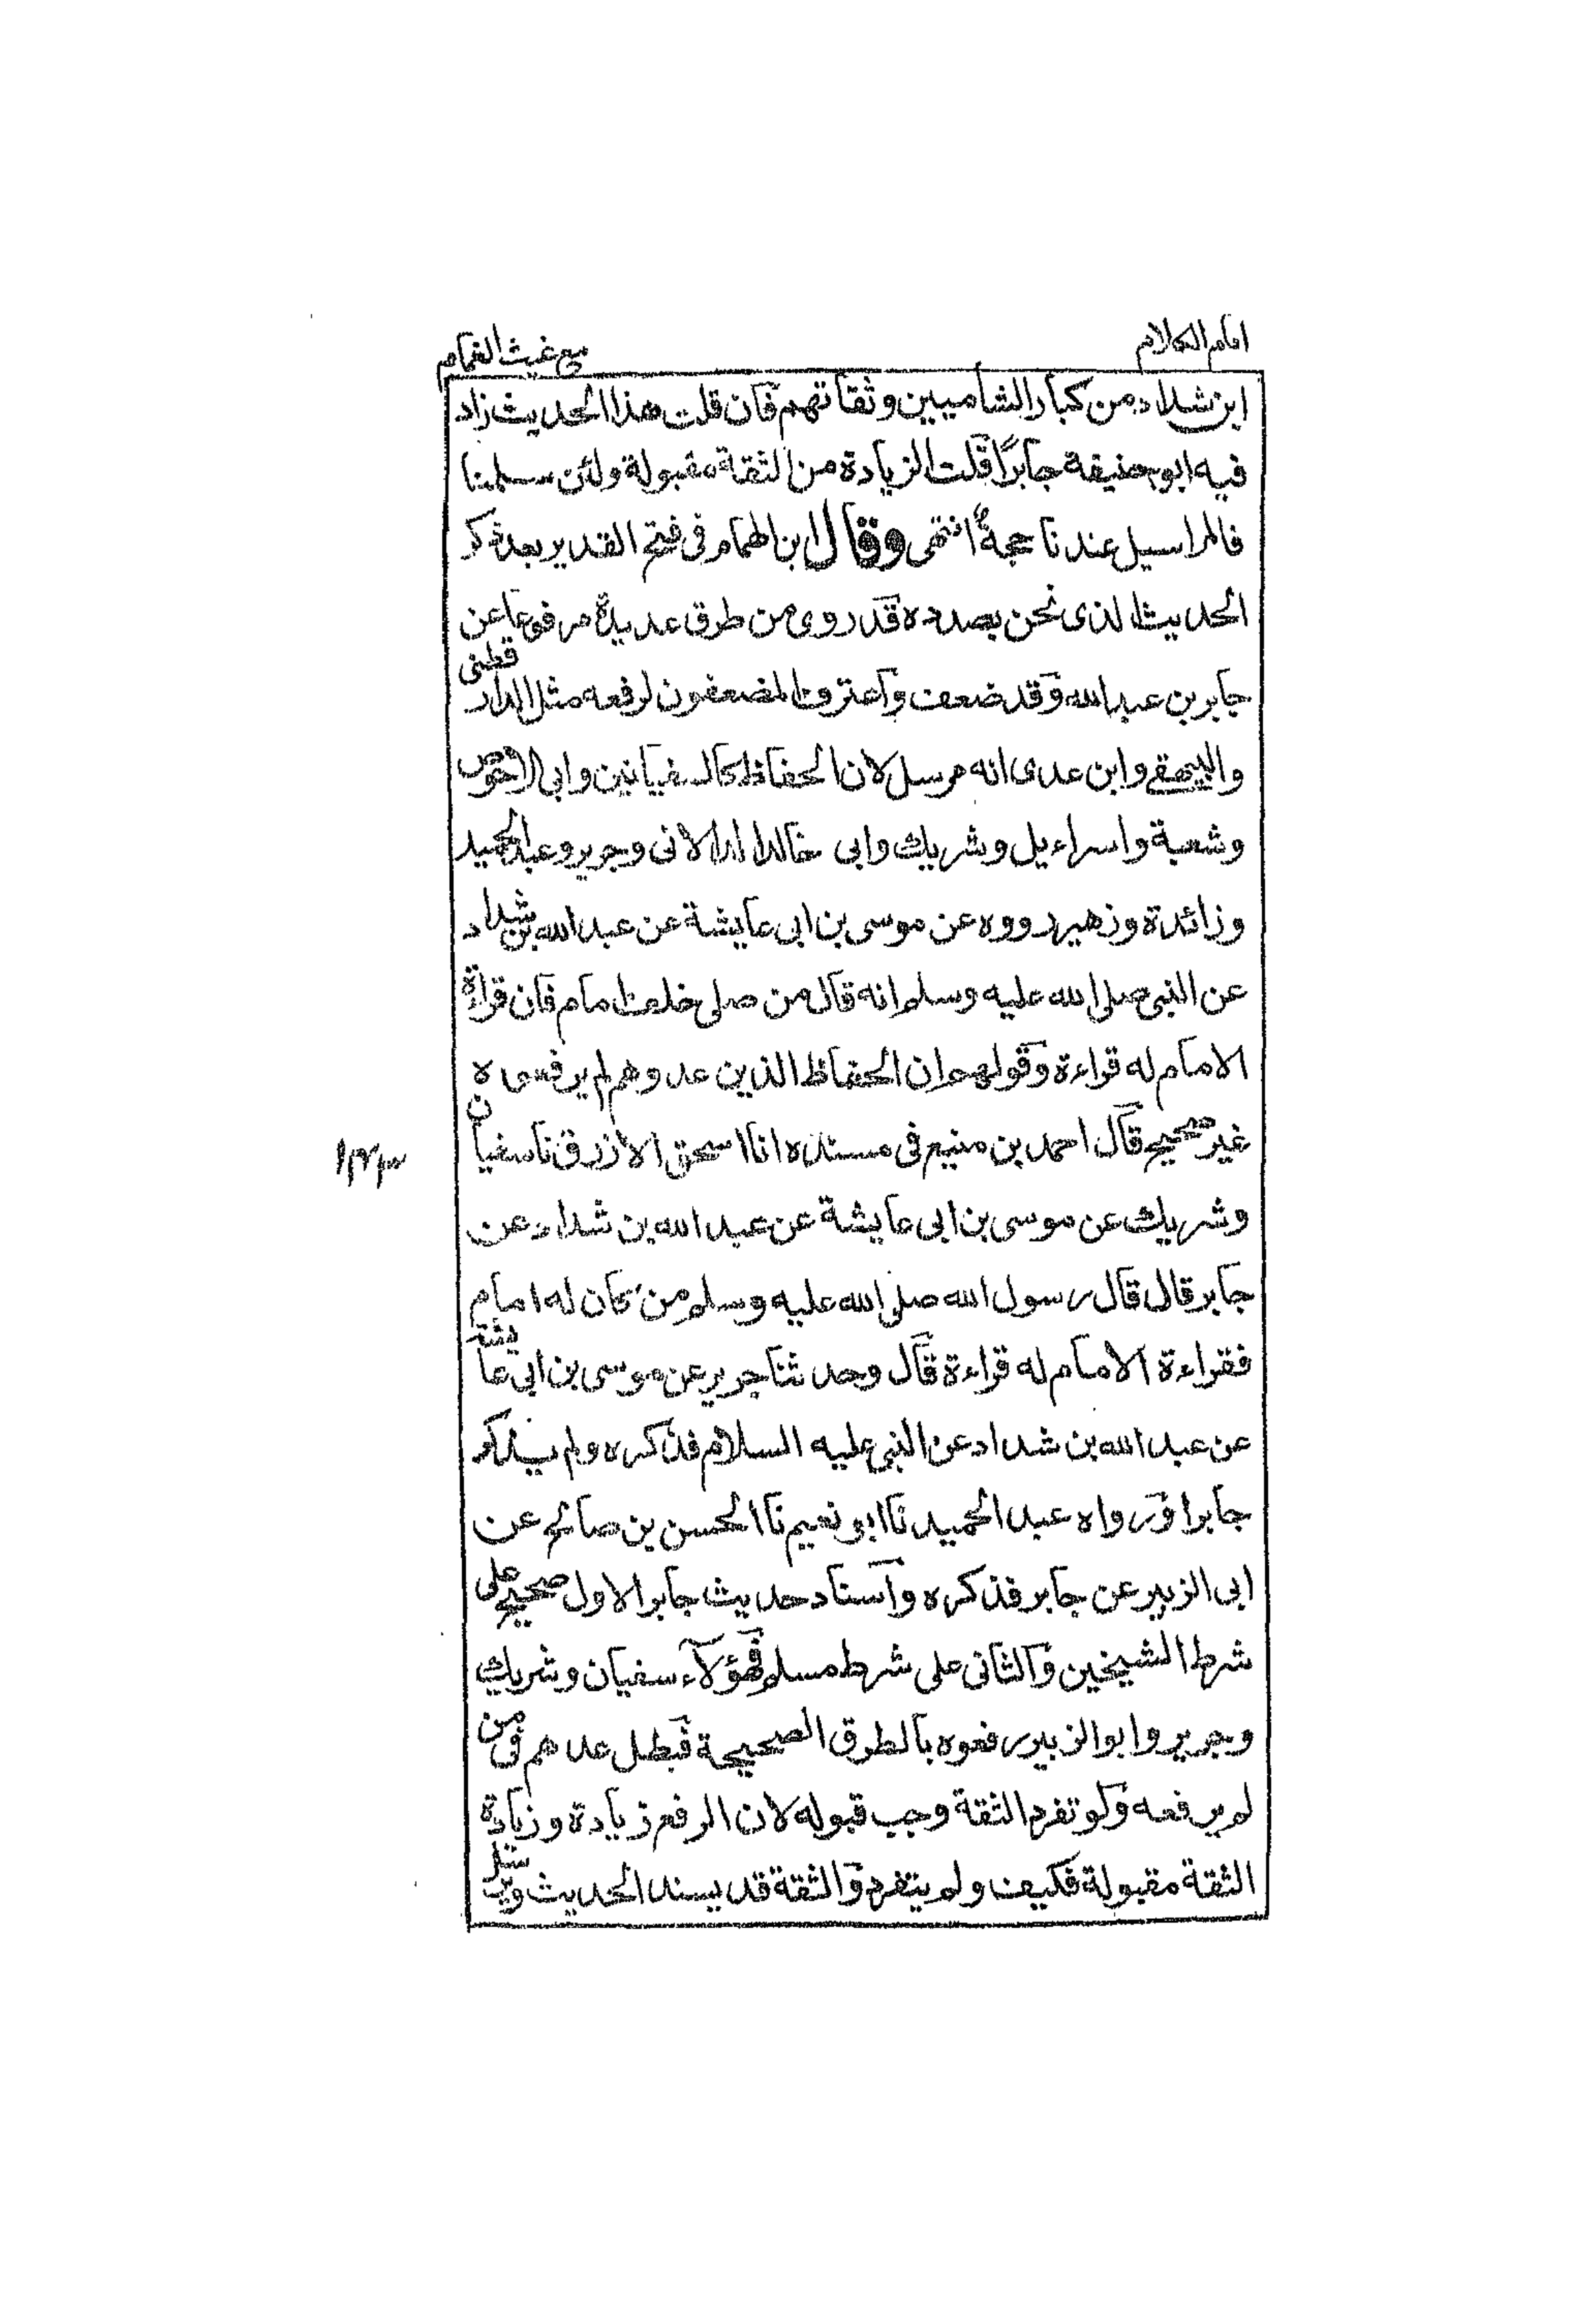 امام الكلام
مع غيث الغمام
ابن شداد من كبار الشاميين وثقاتهم فان قلت هذا الحديث زاد
فيه ابو حنيفة جابرًا قلت الزيادة من الثقة مقبولة ولئن سلمنا
فالمراسيل عندنا حجةٌ انتهى وقال ابن الهمام فى فتح القدير بعد ذكر
الحديث الذى نحن بصدده قد روى من طرق عديدة مرفوعا عن
جابر بن عبد الله وقد ضعف واعترف المضعفون لرفعه مثل الدارقطنى
والبيهقے وابن عدى انه مرسل لان الحفاظ كالسفيانين وابى الاحوص
وشعبة واسراءيل وشريك وابى خالد الدالانى وجرير وعبد الحميد
وزائدة وزهير رووه عن موسى بن ابى عايشة عن عبد الله بن شداد
عن النبى صلى الله عليه وسلم انه قال من صلى خلف امام فان قراءة
الامام له قراءة وقولهم ان الحفاظ الذين عدوهم لم يرفعوه
غير صحيح قال احمد بن منيع فى مسنده انا اسحق الازرق نا سفيان
وشريك عن موسى بن ابى عايشة عن عبد الله بن شداد عن
جابر قال قال رسول الله صلى الله عليه وسلم من كان له امام
فقراءة الامام له قراءة قال وحدثنا جرير عن موسى بن ابى عايشة
عن عبد الله بن شداد عن النبى عليه السلام فذكره ولم يذكر
جابرا ورواه عبد الحميد نا ابو نعيم نا الحسن بن صالح عن
ابى الزبير عن جابر فذكره واسناد حديث جابر الاول صحيح على
شرط الشيخين والثانى على شرط مسلم فهؤلآء سفيان وشريك
وجرير وابو الزبير رفعوه بالطرق الصحيحة فبطل عدهم فى من
لم يرفعه ولو تفرد الثقة وجب قبوله لان الرفع زيادة وزيادة
الثقة مقبولة فكيف ولم يتفرد والثقة قد يسند الحديث